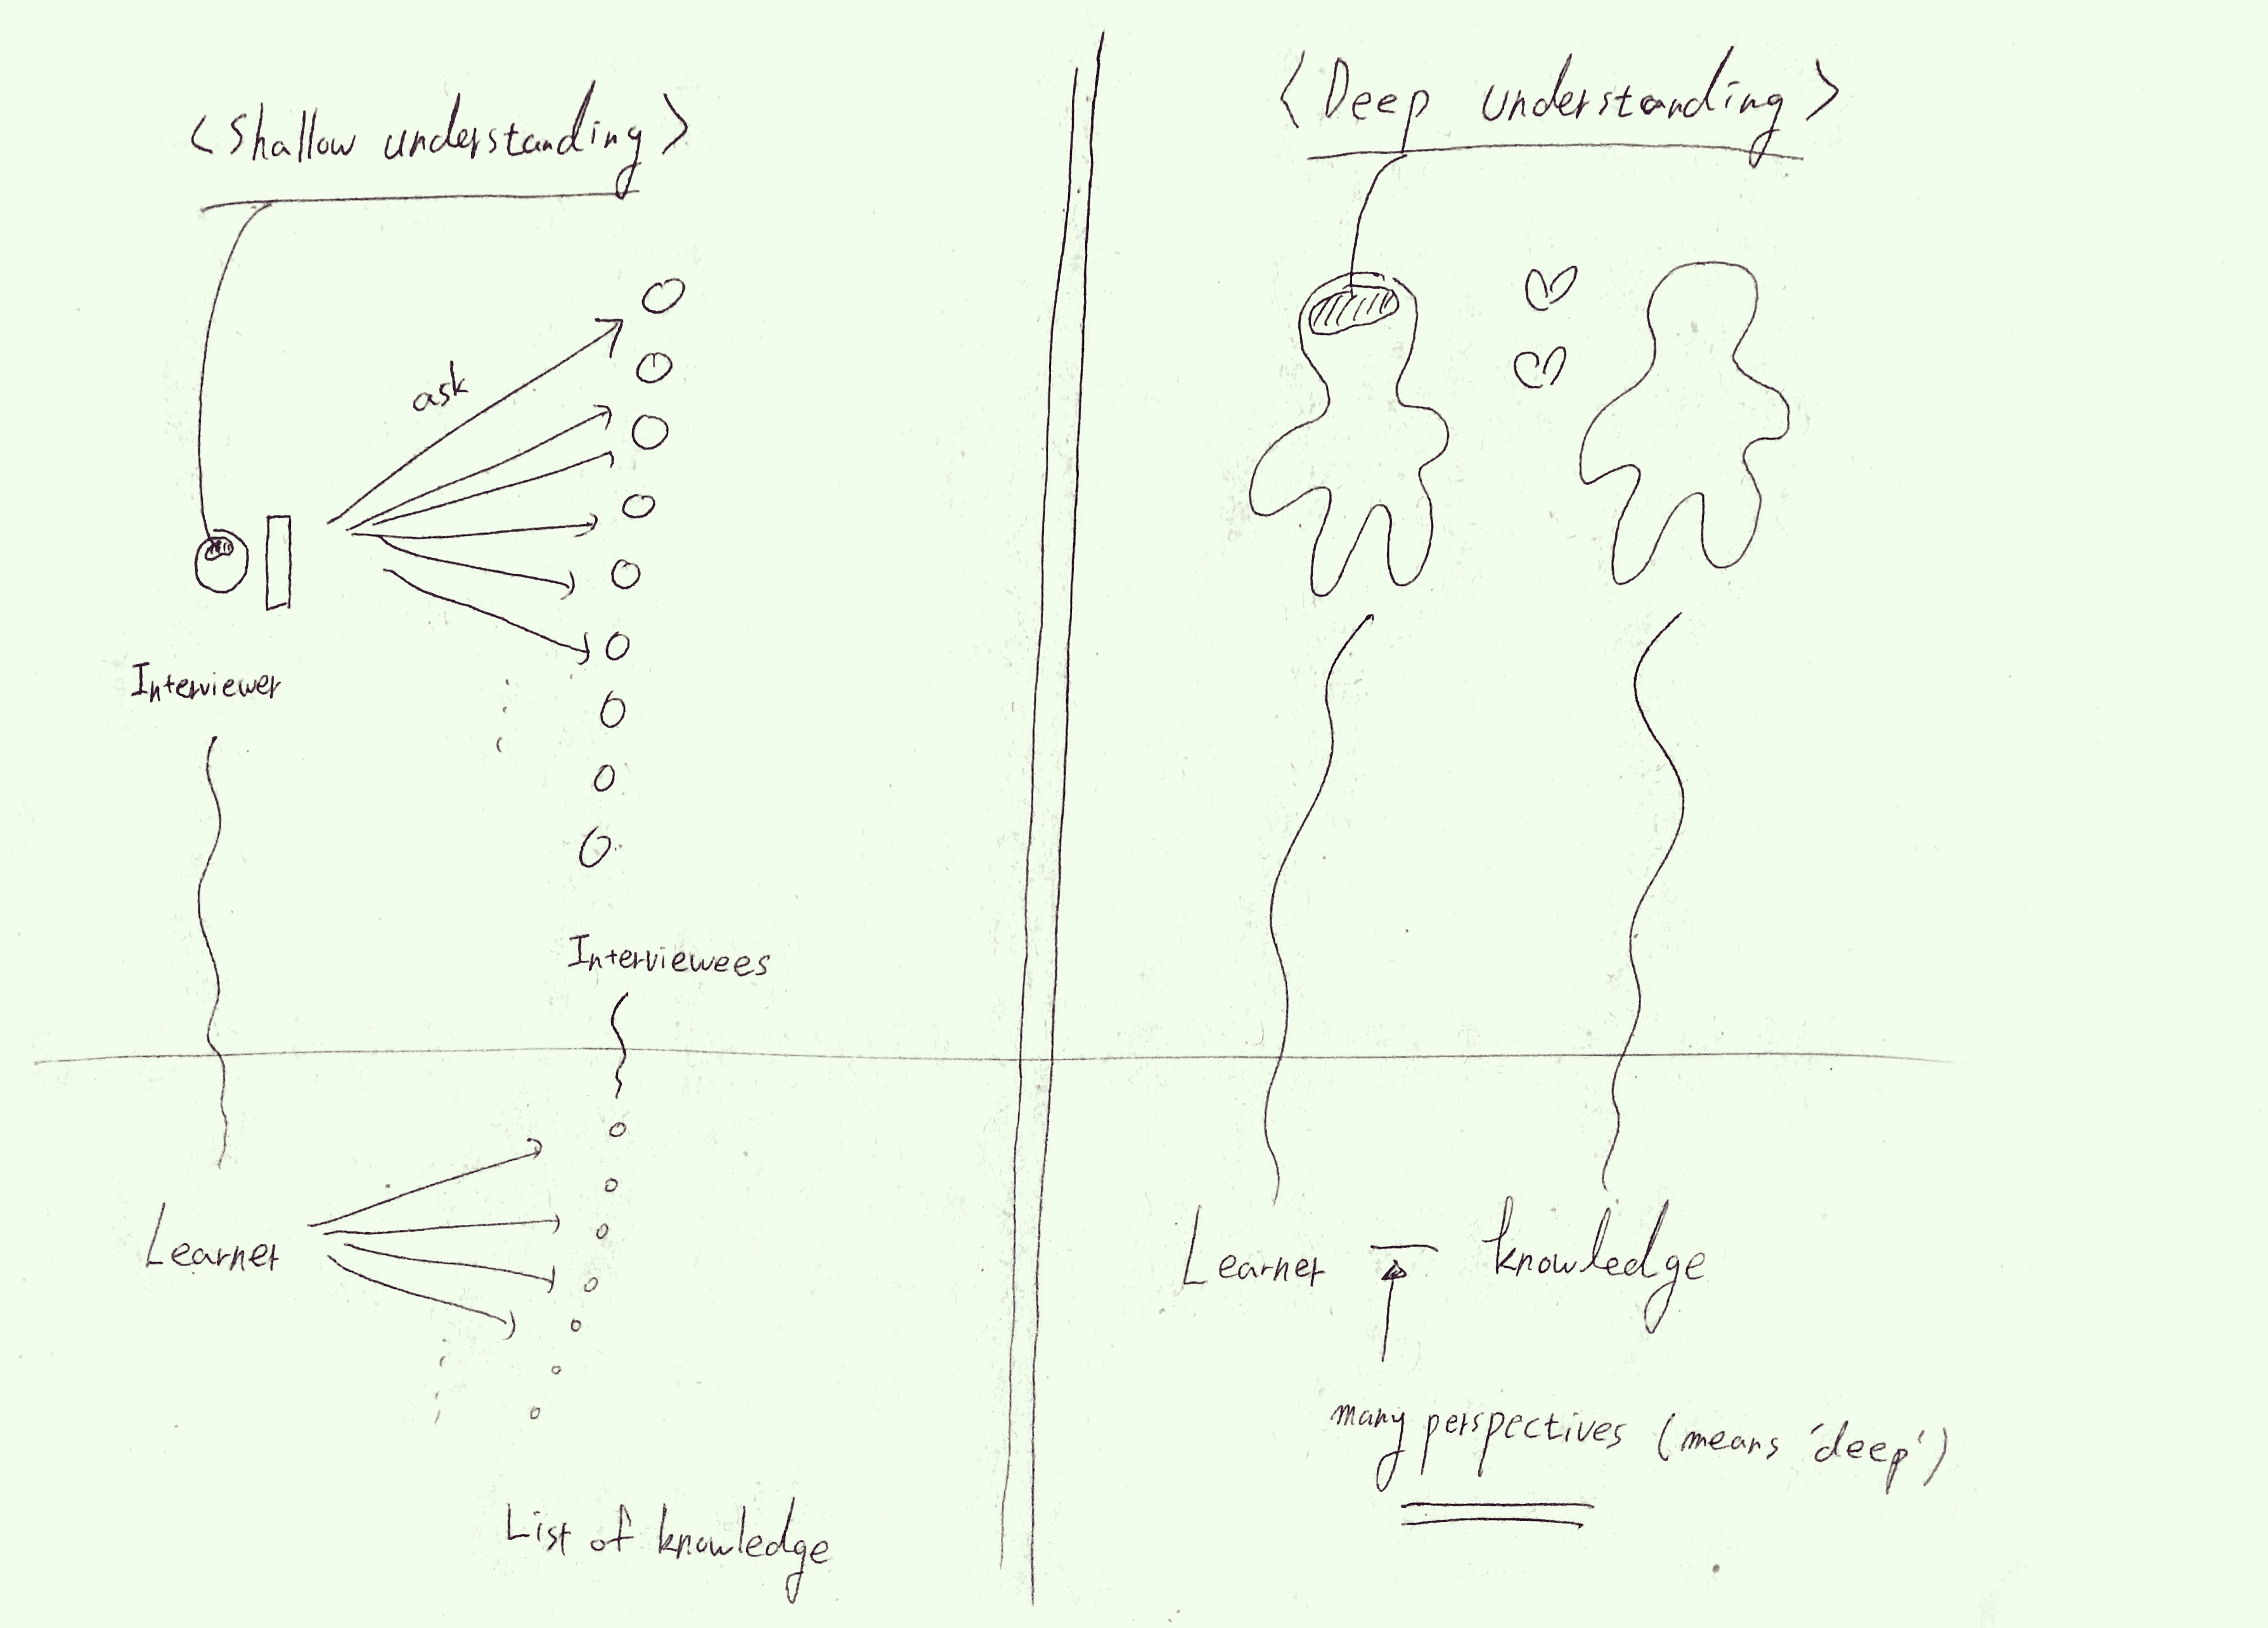 <Shallow understanding>
ask
Interviewer
Interviewees
Learner
List of knowledge
<Deep understanding>
Learner — knowledge
many perspectives (means 'deep')